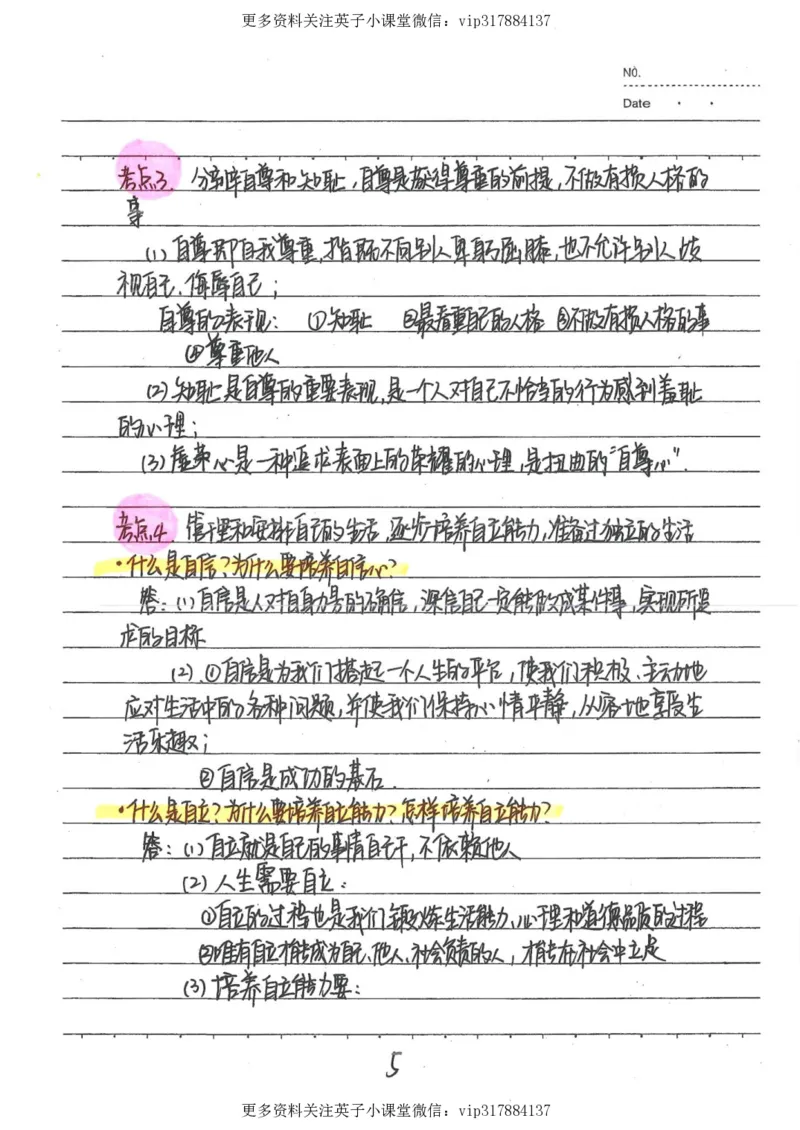 更多资料关注英子小课堂微信：vip317884137
No.
Date
考点3. 分辨自尊和知耻，自尊是获得尊重的前提，不做有损人格的
事
(1) 自尊即自我尊重，指既不向别人卑躬屈膝，也不允许别人歧
视自己、侮辱自己；
自尊的表现： ①知耻 ②最看重自己的人格 ③不做有损人格的事
④尊重他人
(2) 知耻是自尊的重要表现，是一个人对自己不恰当的行为感到羞耻
的心理；
(3) 虚荣心是一种追求表面上的荣耀的心理，是扭曲的“自尊心”.
考点4. 管理和安排自己的生活，逐步培养自立能力，准备过独立的生活
·什么是自信？为什么要培养自信心？
答：(1) 自信是人对自身力量的确信，深信自己一定能做成某件事，实现所追
求的目标
(2) ①自信是为我们搭起一个人生的平台，使我们积极、主动地
应对生活中的各种问题，并使我们保持心情平静，从容地享受生
活乐趣；
②自信是成功的基石.
·什么是自立？为什么要培养自立能力？怎样培养自立能力？
答：(1) 自立就是自己的事情自己干，不依赖他人
(2) 人生需要自立：
①自立的过程也是我们锻炼生活能力、心理和道德品质的过程
②唯有自立才能成为自己、他人、社会负责的人，才能在社会中立足
(3) 培养自立能力要：
5
更多资料关注英子小课堂微信：vip317884137